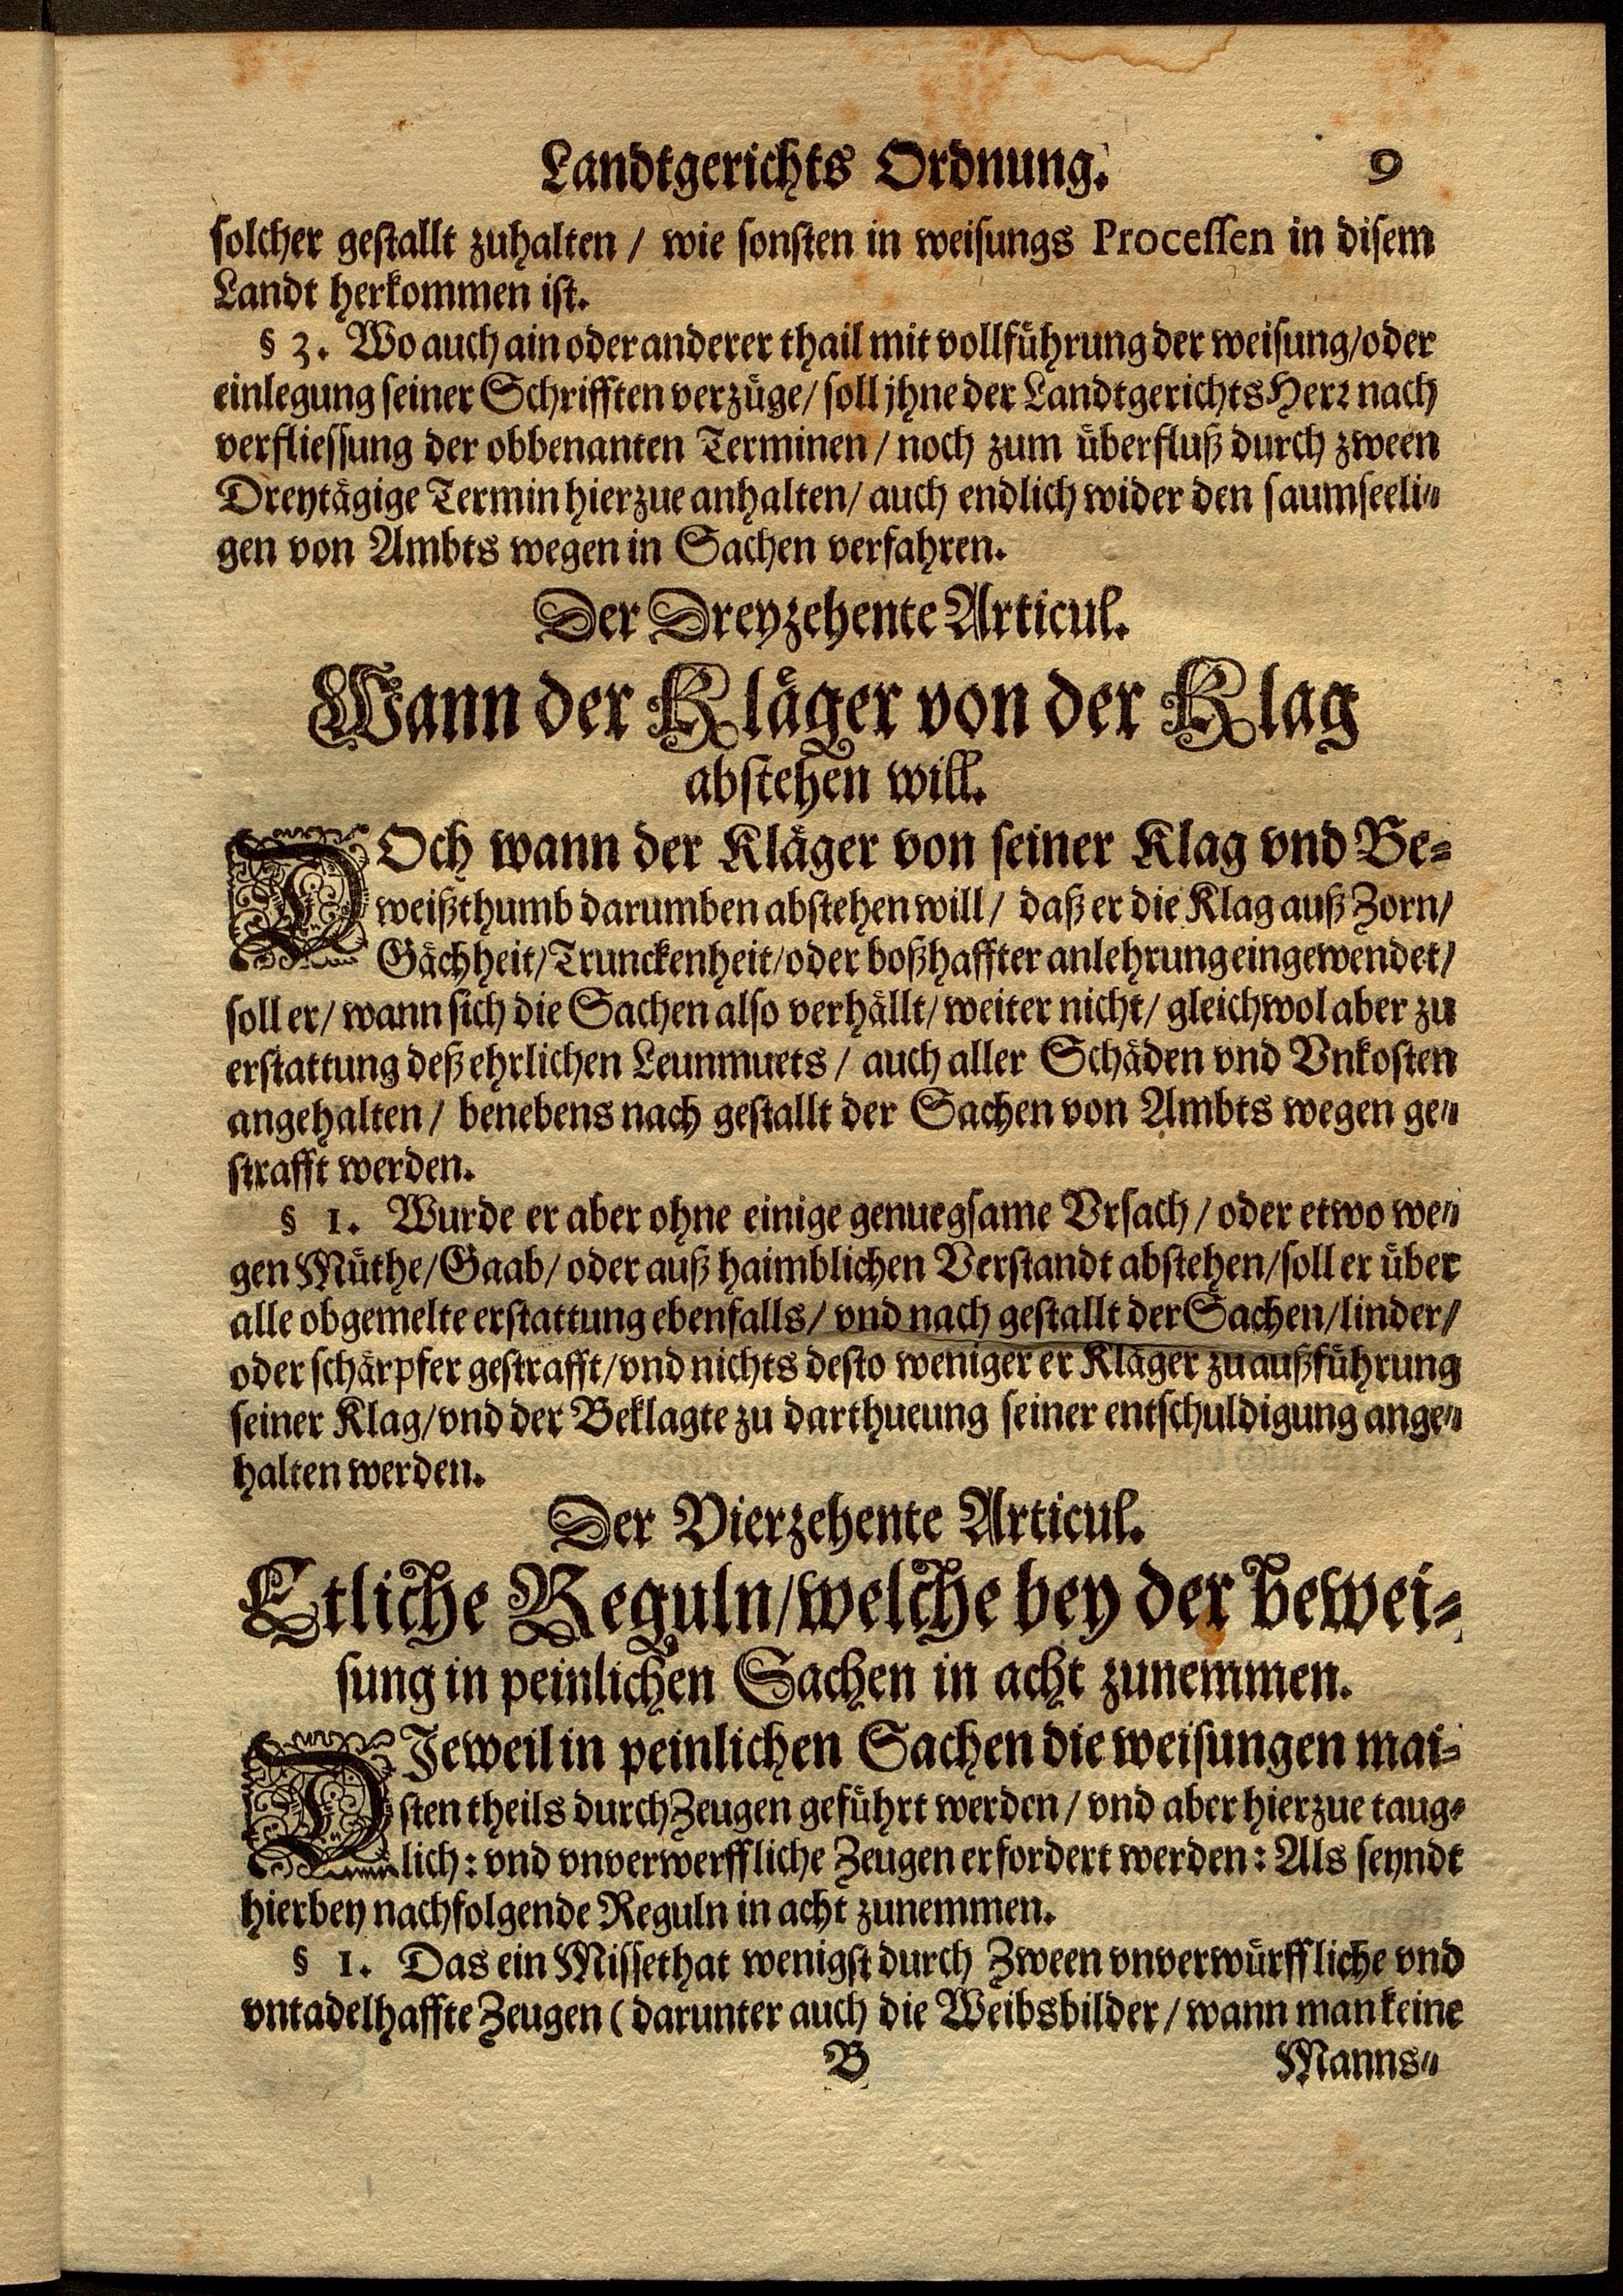 Landtgerichts Ordnung. 9
solcher gestallt zuhalten / wie sonsten in weisungs Processen in disem
Landt herkommen ist.
§ 3. Wo auch ain oder anderer thail mit vollführung der weisung/oder
einlegung seiner Schrifften verzüge/ soll jhne der Landtgerichts Herr nach
verfliessung der obbenanten Terminen / noch zum überfluß durch zween
Dreytägige Termin hierzue anhalten/ auch endlich wider den saumseeli-
gen von Ambts wegen in Sachen verfahren.
Der Dreyzehente Articul.
Wann der Kläger von der Klag
abstehen will.
DOch wann der Kläger von seiner Klag vnd Be-
weißthumb darumben abstehen will / daß er die Klag auß Zorn/
Gächheit/Trunckenheit/oder boßhaffter anlehrung eingewendet/
soll er/ wann sich die Sachen also verhällt/ weiter nicht/ gleichwol aber zu
erstattung deß ehrlichen Leunmuets / auch aller Schäden vnd Vnkosten
angehalten / benebens nach gestallt der Sachen von Ambts wegen ge-
strafft werden.
§ 1. Wurde er aber ohne einige genuegsame Vrsach / oder etwo we-
gen Müthe/Gaab/ oder auß haimblichen Verstandt abstehen/soll er über
alle obgemelte erstattung ebenfalls/ vnd nach gestallt der Sachen/linder/
oder schärpfer gestrafft/vnd nichts desto weniger er Kläger zu außführung
seiner Klag/vnd der Beklagte zu darthueung seiner entschuldigung ange-
halten werden.
Der Vierzehente Articul.
Etliche Reguln/welche bey der bewei-
sung in peinlichen Sachen in acht zunemmen.
DJeweil in peinlichen Sachen die weisungen mai-
sten theils durch Zeugen geführt werden / vnd aber hierzue taug-
lich: vnd vnverwerffliche Zeugen erfordert werden: Als seyndt
hierbey nachfolgende Reguln in acht zunemmen.
§ 1. Das ein Missethat wenigst durch Zween vnverwürffliche vnd
vntadelhaffte Zeugen (darunter auch die Weibsbilder / wann man keine
B Manns-